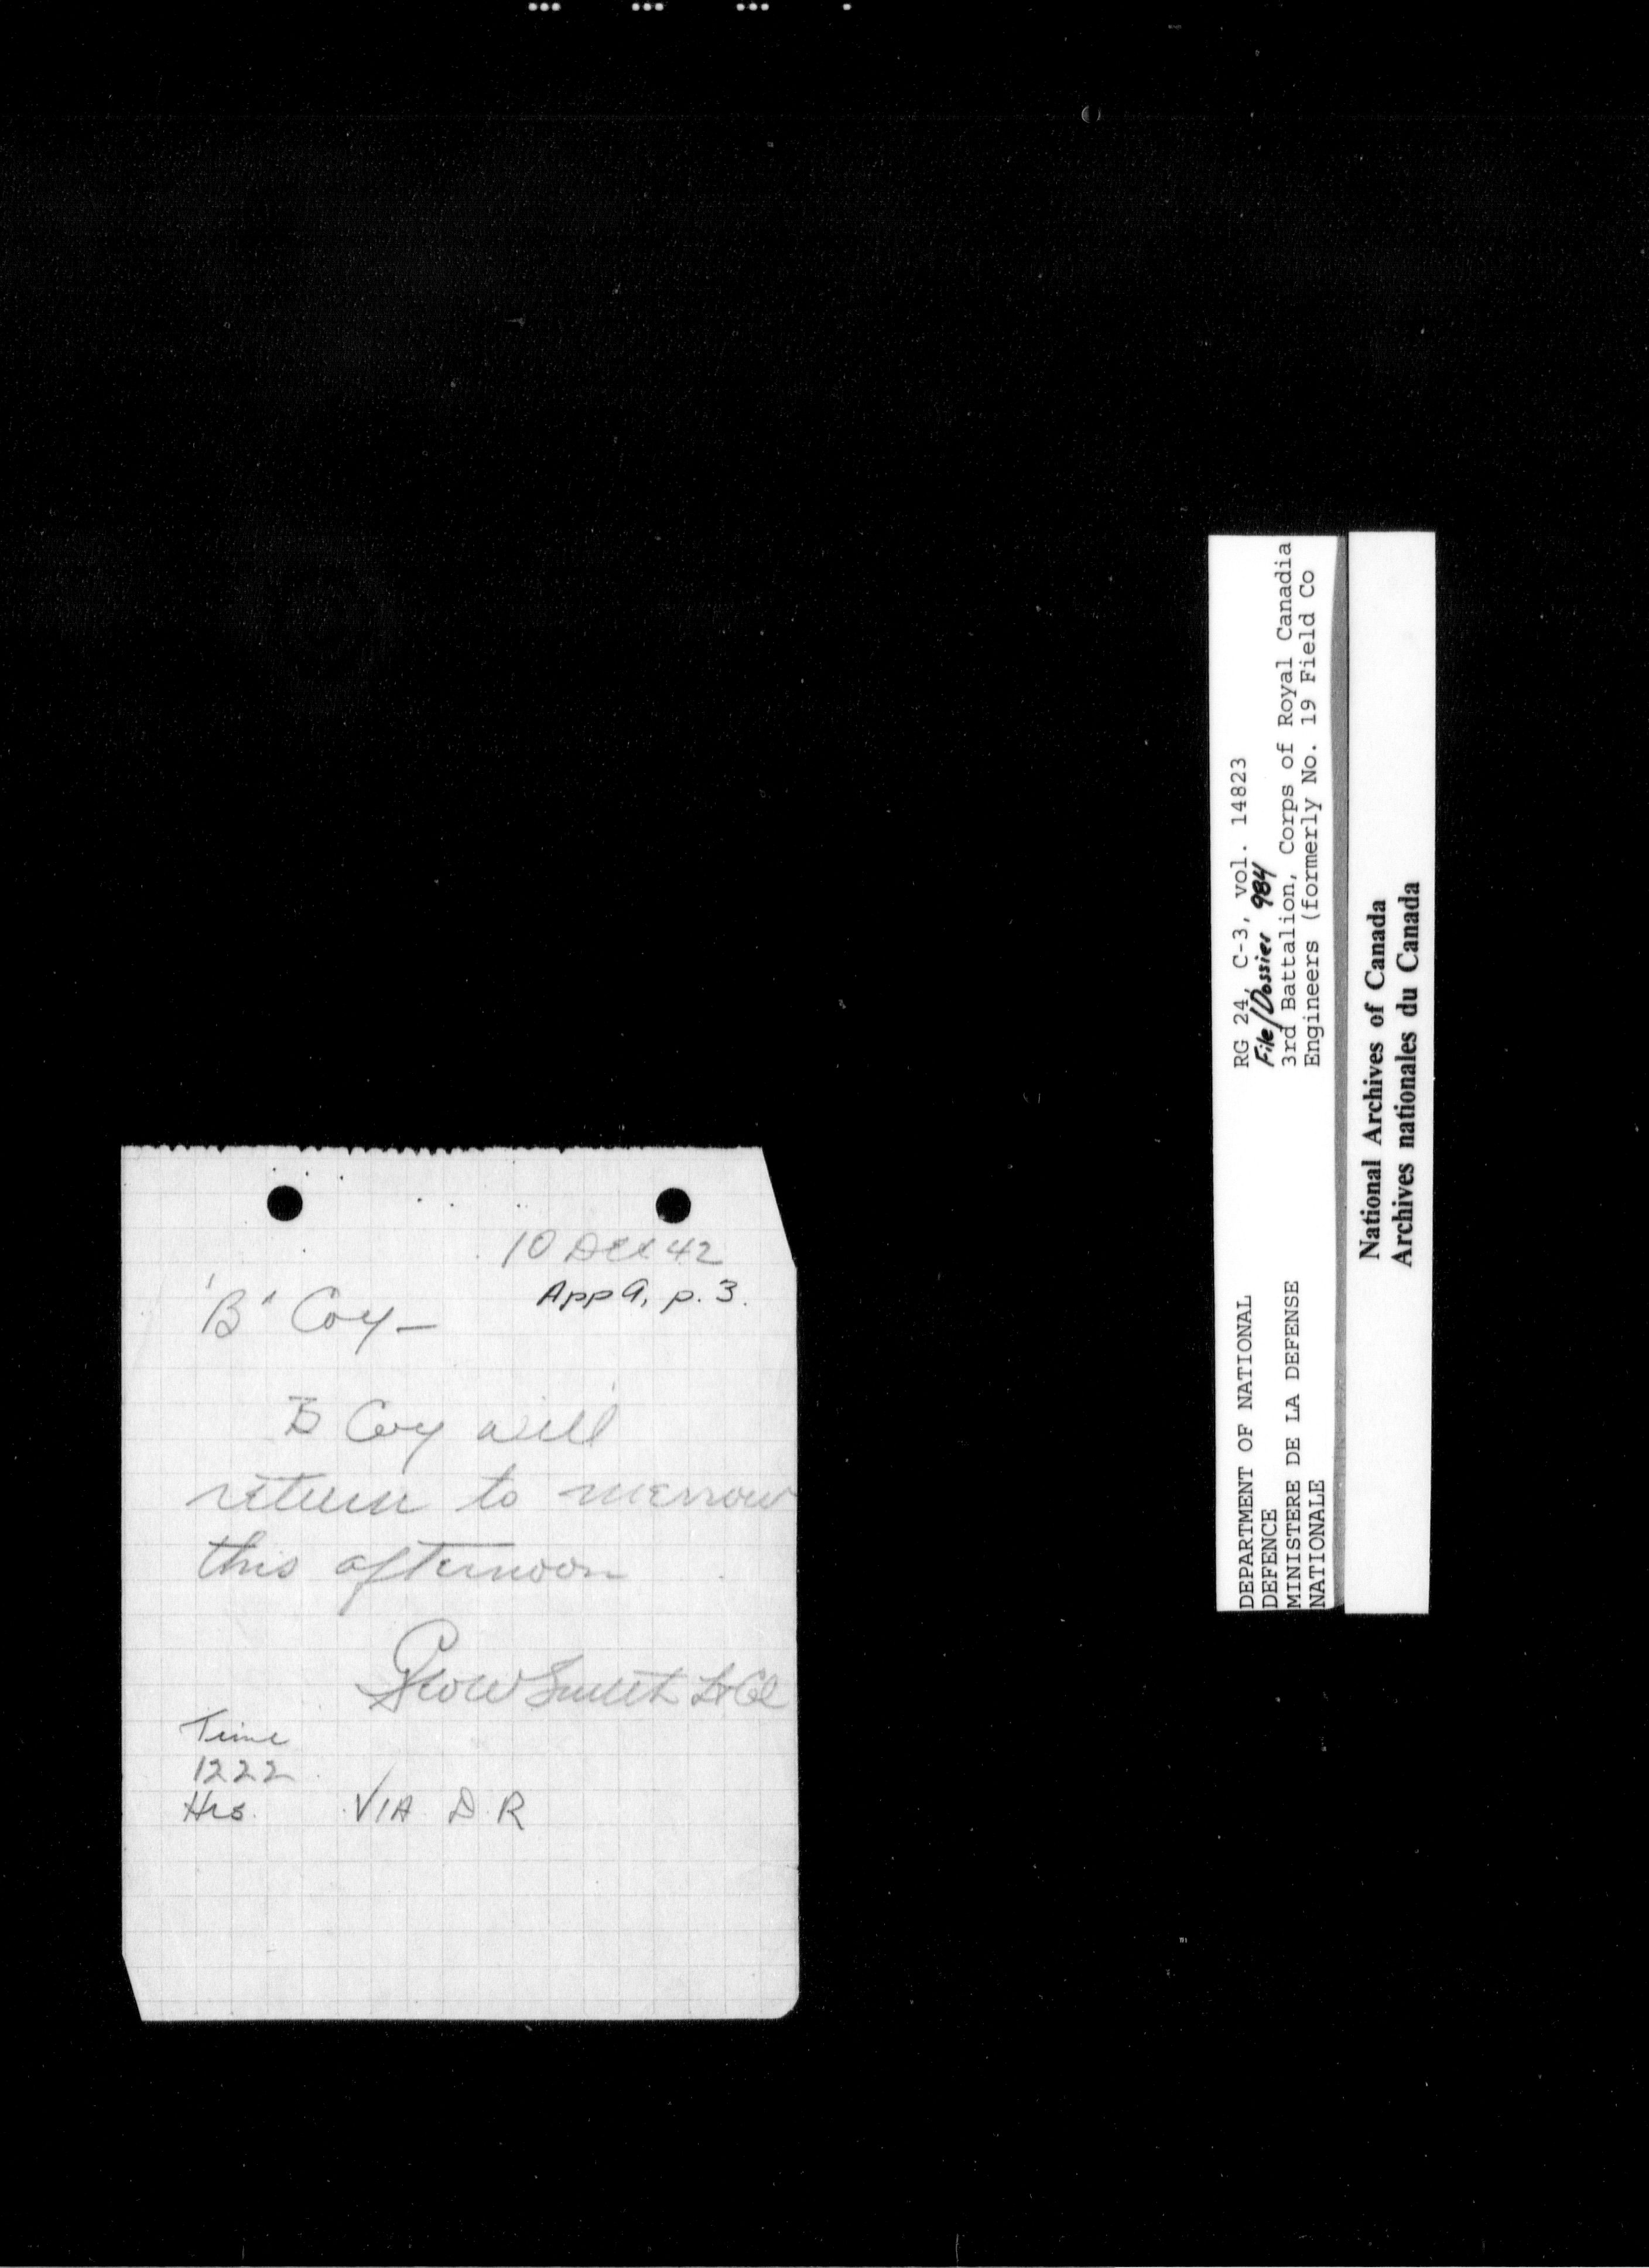 10 Dec 42
App 9, p. 3.
'B' Coy –
B Coy will
return to merrow
this afternoon
Smith Lt Col
Time
1222
Hrs. VIA D R
RG 24, C-3, vol. 14823
File/Dossier 984
3rd Battalion, Corps of Royal Canadia
Engineers (formerly No. 19 Field Co
DEPARTMENT OF NATIONAL
DEFENCE
MINISTERE DE LA DEFENSE
NATIONALE
National Archives of Canada
Archives nationales du Canada